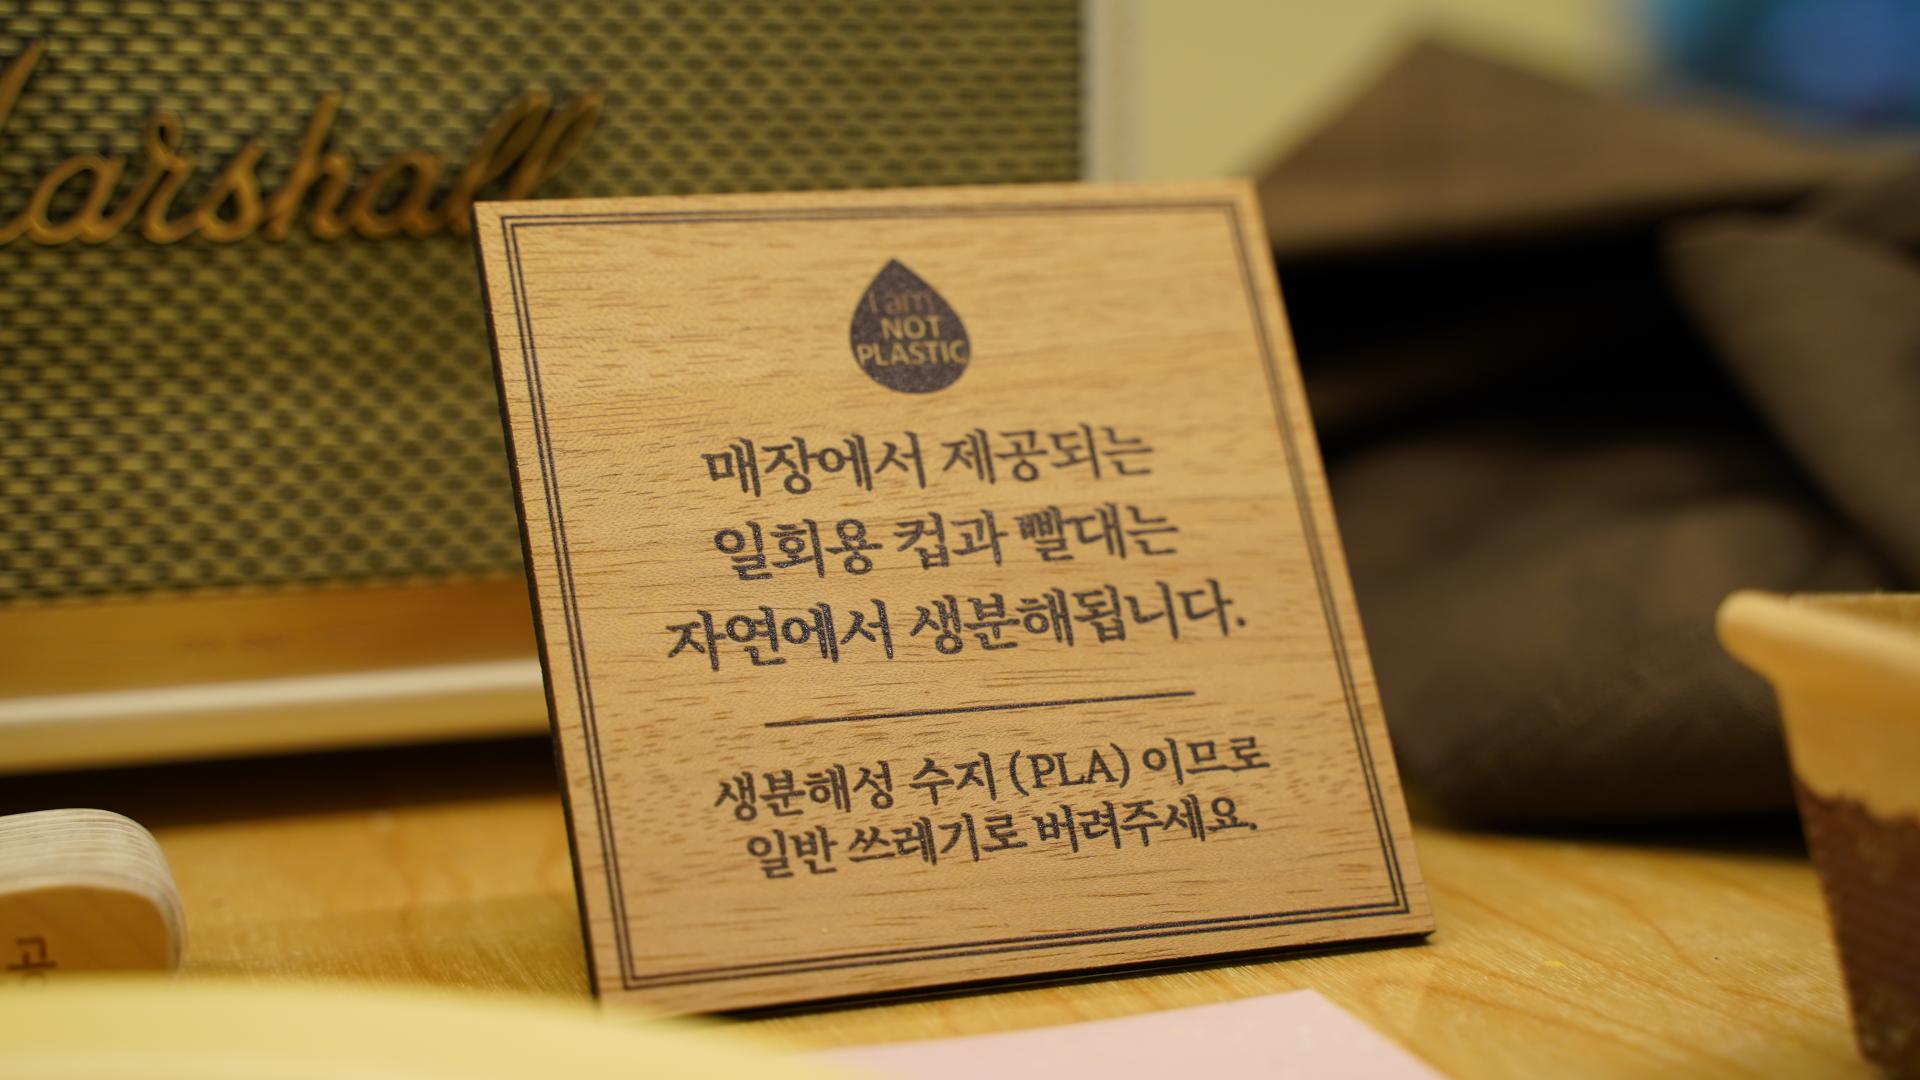 Marshall
I am
NOT
PLASTIC
매장에서 제공되는
일회용 컵과 빨대는
자연에서 생분해됩니다.
생분해성 수지 (PLA) 이므로
일반 쓰레기로 버려주세요.